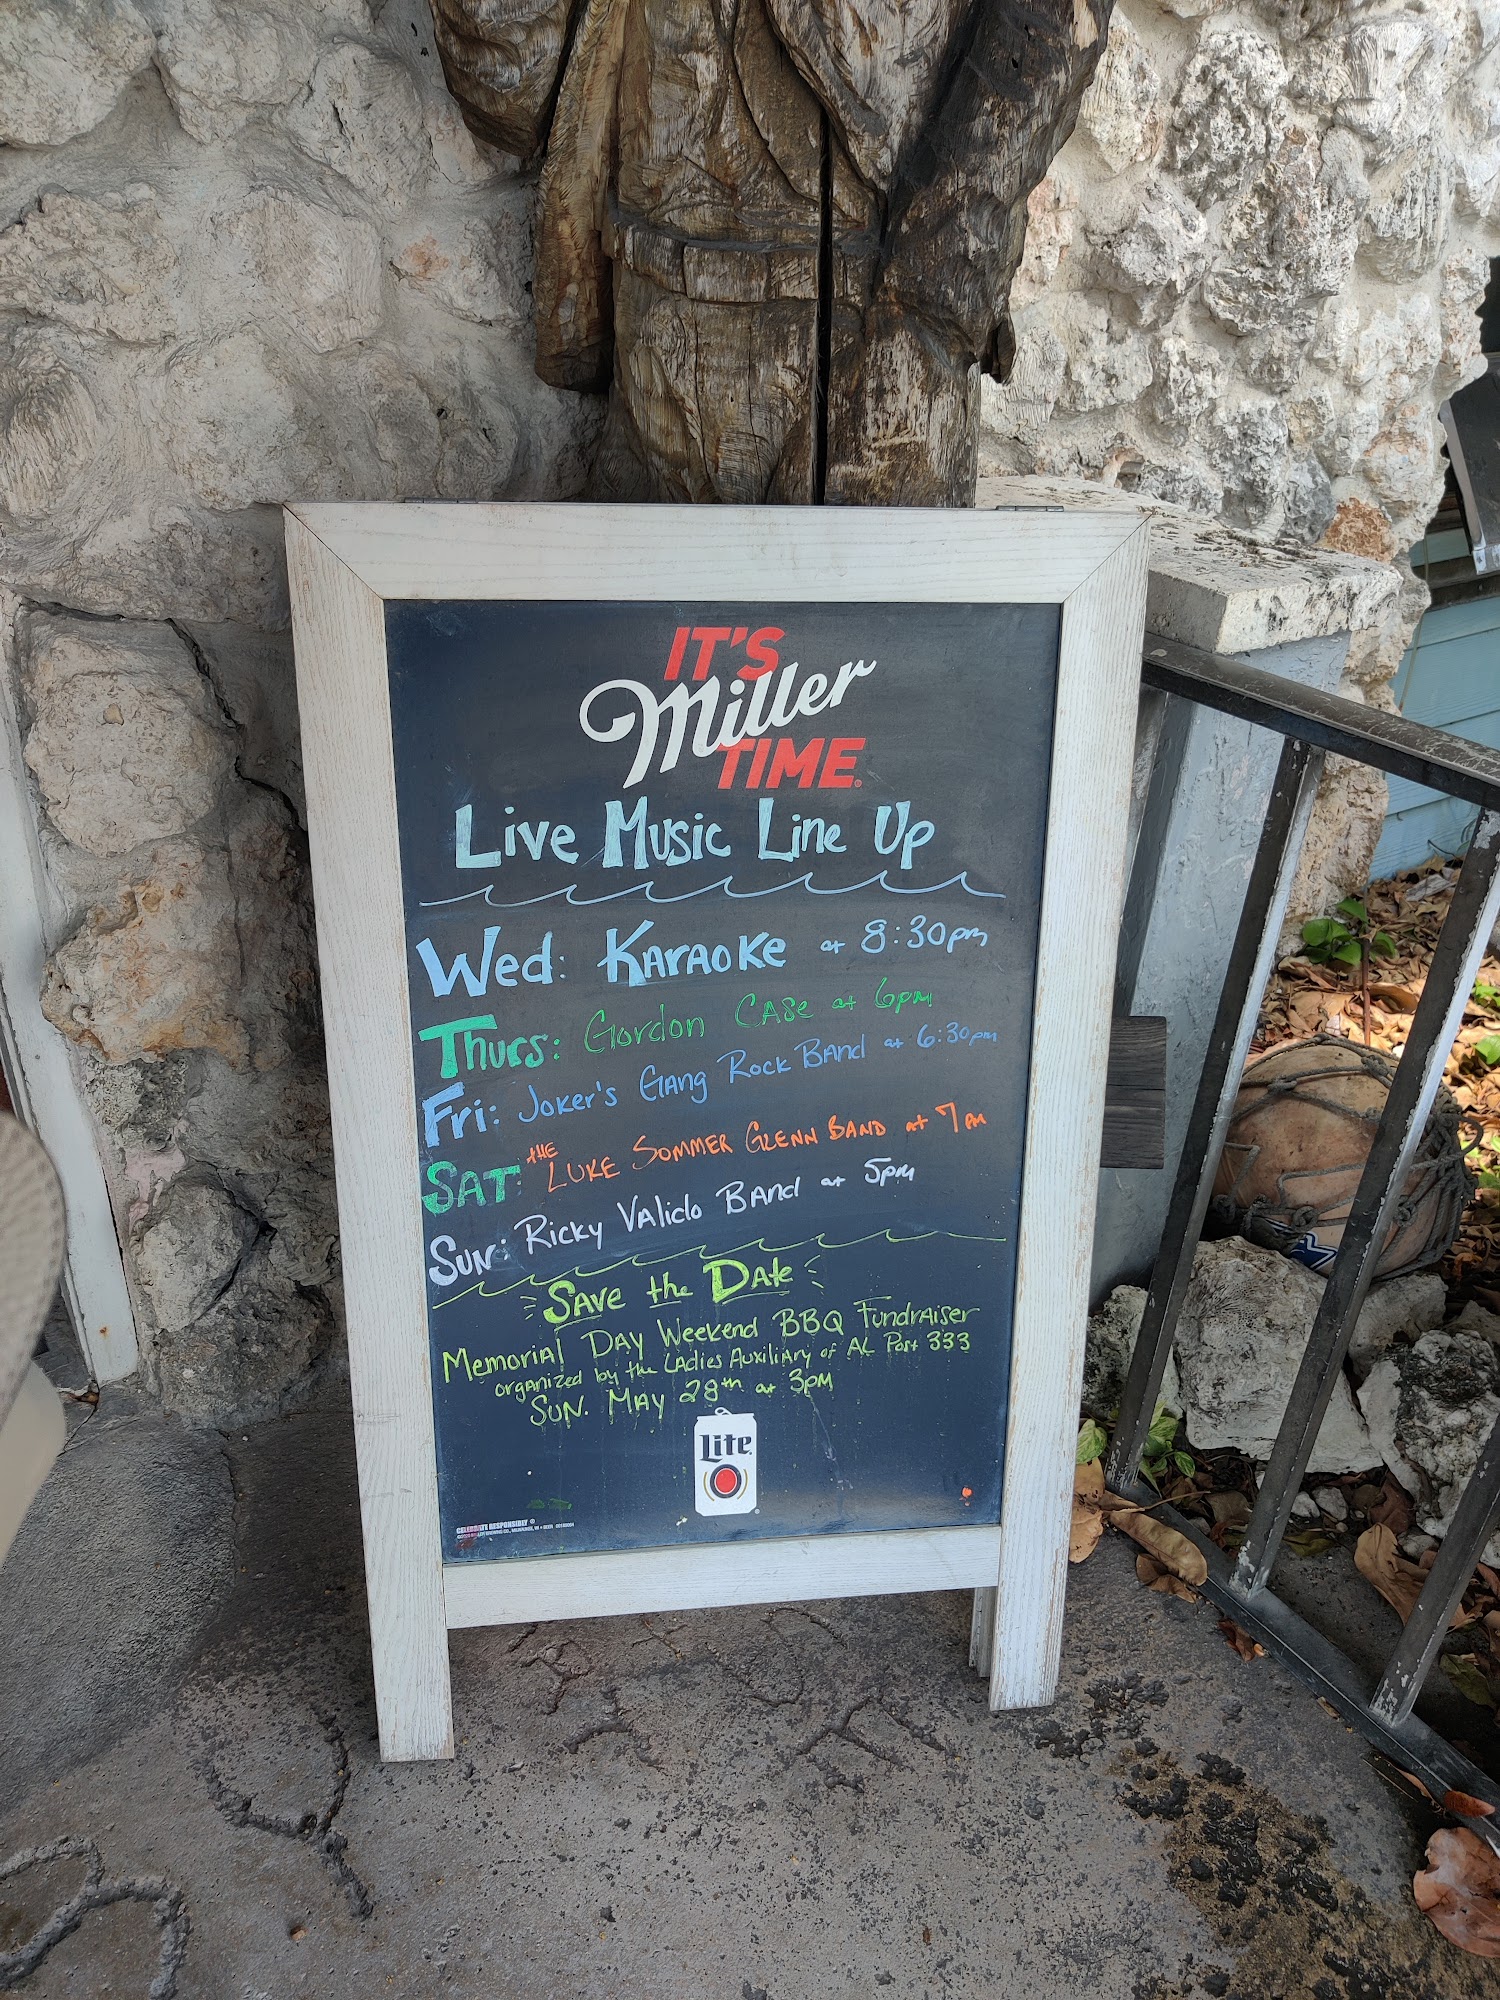 IT'S
Miller
TIME
Live Music Line Up
Wed: Karaoke at 8:30pm
Thurs: Gordon Case at 6pm
Fri: Joker's Gang Rock Band at 6:30pm
Sat: the Luke Sommer Glenn Band at 7pm
Sun: Ricky Valido Band at 5pm
Save the Date
Memorial Day Weekend BBQ Fundraiser
organized by the Ladies Auxiliary of AL Post 333
Sun. May 28th at 3pm
Lite
CELEBRATE RESPONSIBLY